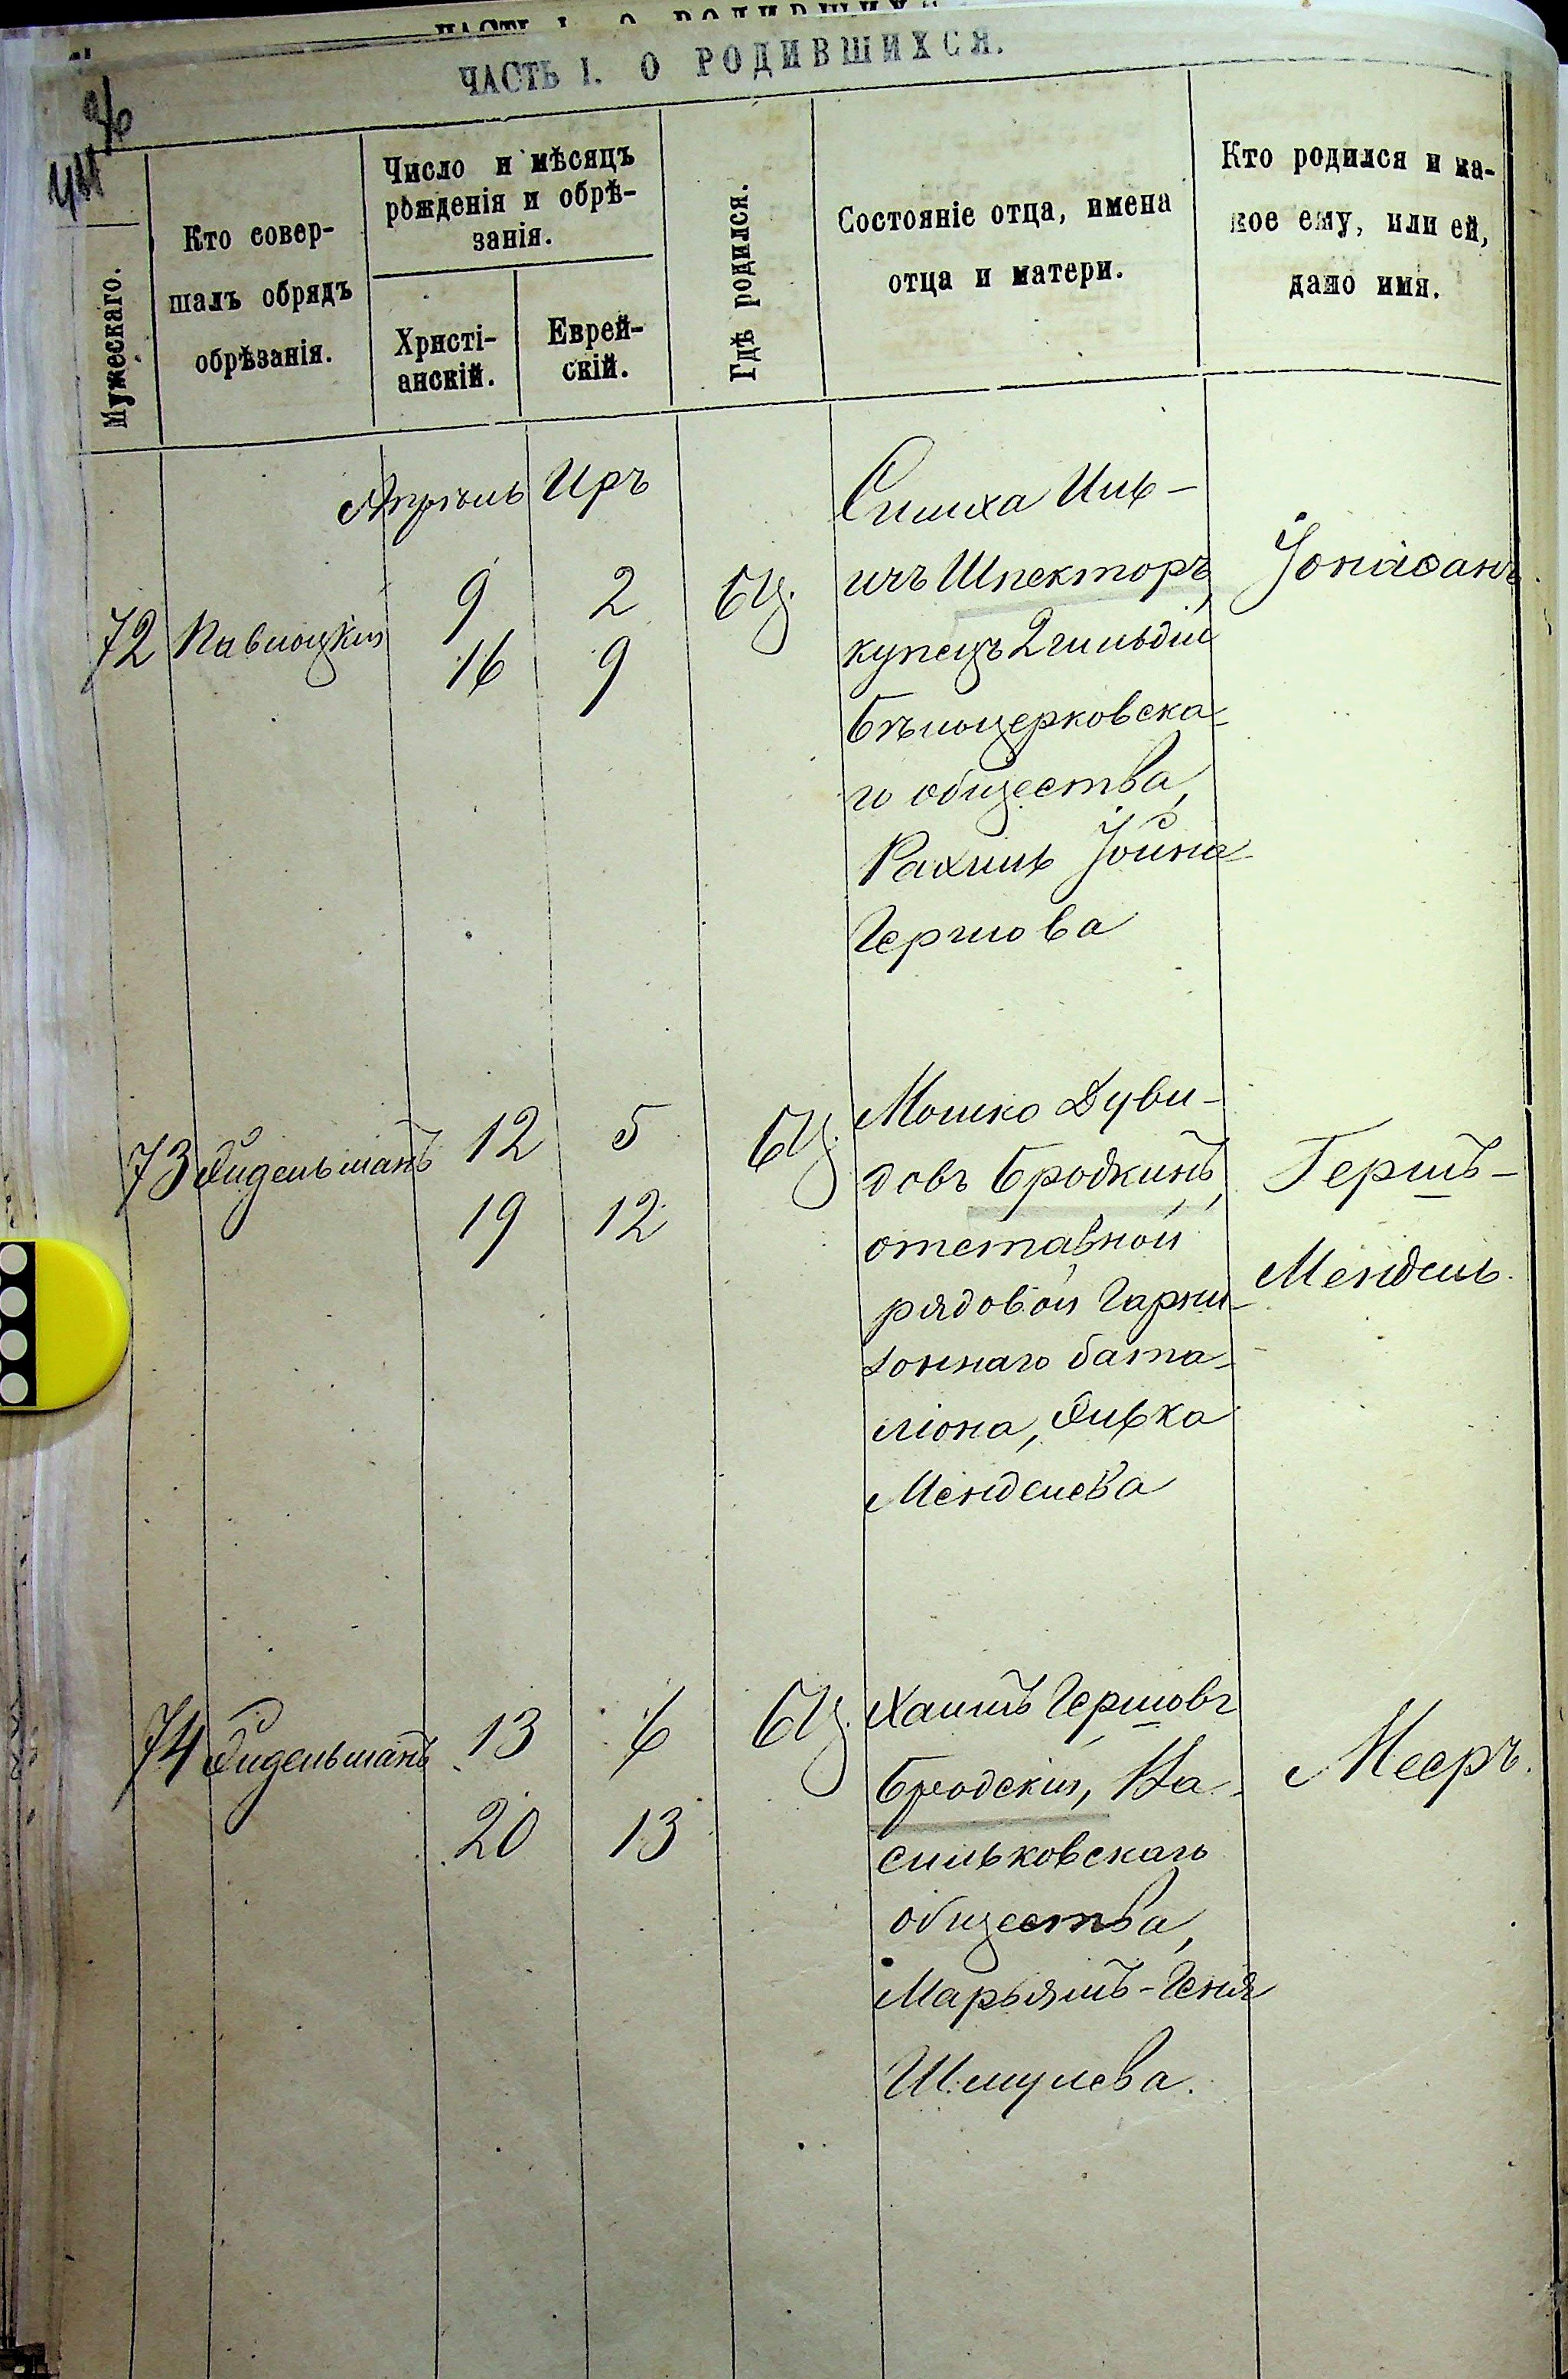 ЧАСТЬ I. О РОДИВШИХСЯ.
Мужескаго.
Кто совер-
шалъ обрядъ
обрѣзанія.
Число и мѣсяцъ
рожденія и обрѣ-
занія.
Христі-
анскій.
Еврей-
скій.
Гдѣ родился.
Состояніе отца, имена
отца и матери.
Кто родился и ка-
кое ему, или ей,
дано имя.
Апрѣль Иръ
72 Павлоцкій
9 2
16 9
БЦ.
Симха Иль-
ичъ Шпекторъ,
купецъ 2 гильдіи
Бѣлоцерковска-
го общества,
Рахиль Іойна
Гершова
Іонасанъ.
73 Фидельманъ
12 5
19 12
БЦ.
Мошко Дуви-
довъ Бродкинъ,
отставной
рядовой Гарни-
зоннаго бата-
ліона, Ривка
Менделева
Гершъ-
Мендель.
74 Фидельманъ
13 6
20 13
БЦ.
Хаимъ Гершовъ
Бродскій, Ва-
сильковскаго
общества,
Марьямъ-Геня
Шмулева.
Мееръ.